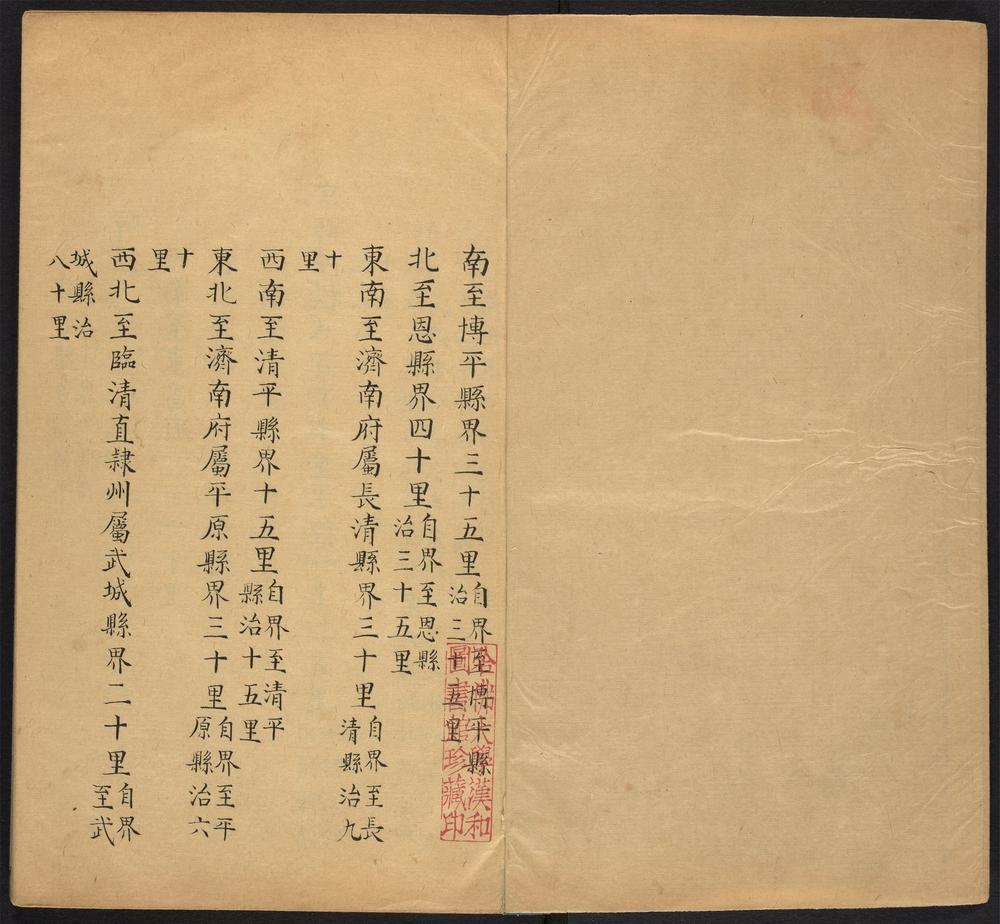 南至博平縣界三十五里自界至博平縣治三十五里
北至恩縣界四十里自界至恩縣治三十五里
東南至濟南府屬長清縣界三十里自界至長清縣治九
十里
西南至清平縣界十五里自界至清平縣治十五里
東北至濟南府屬平原縣界三十里自界至平原縣治六
十里
西北至臨清直隸州屬武城縣界二十里自界至武
城縣治八十里
哈佛大學漢和
圖書館珍藏印